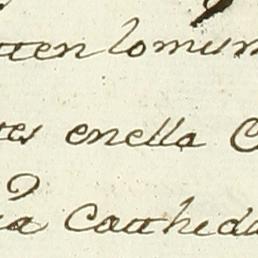 tten lo mism
tes en ella C
ia Catheda